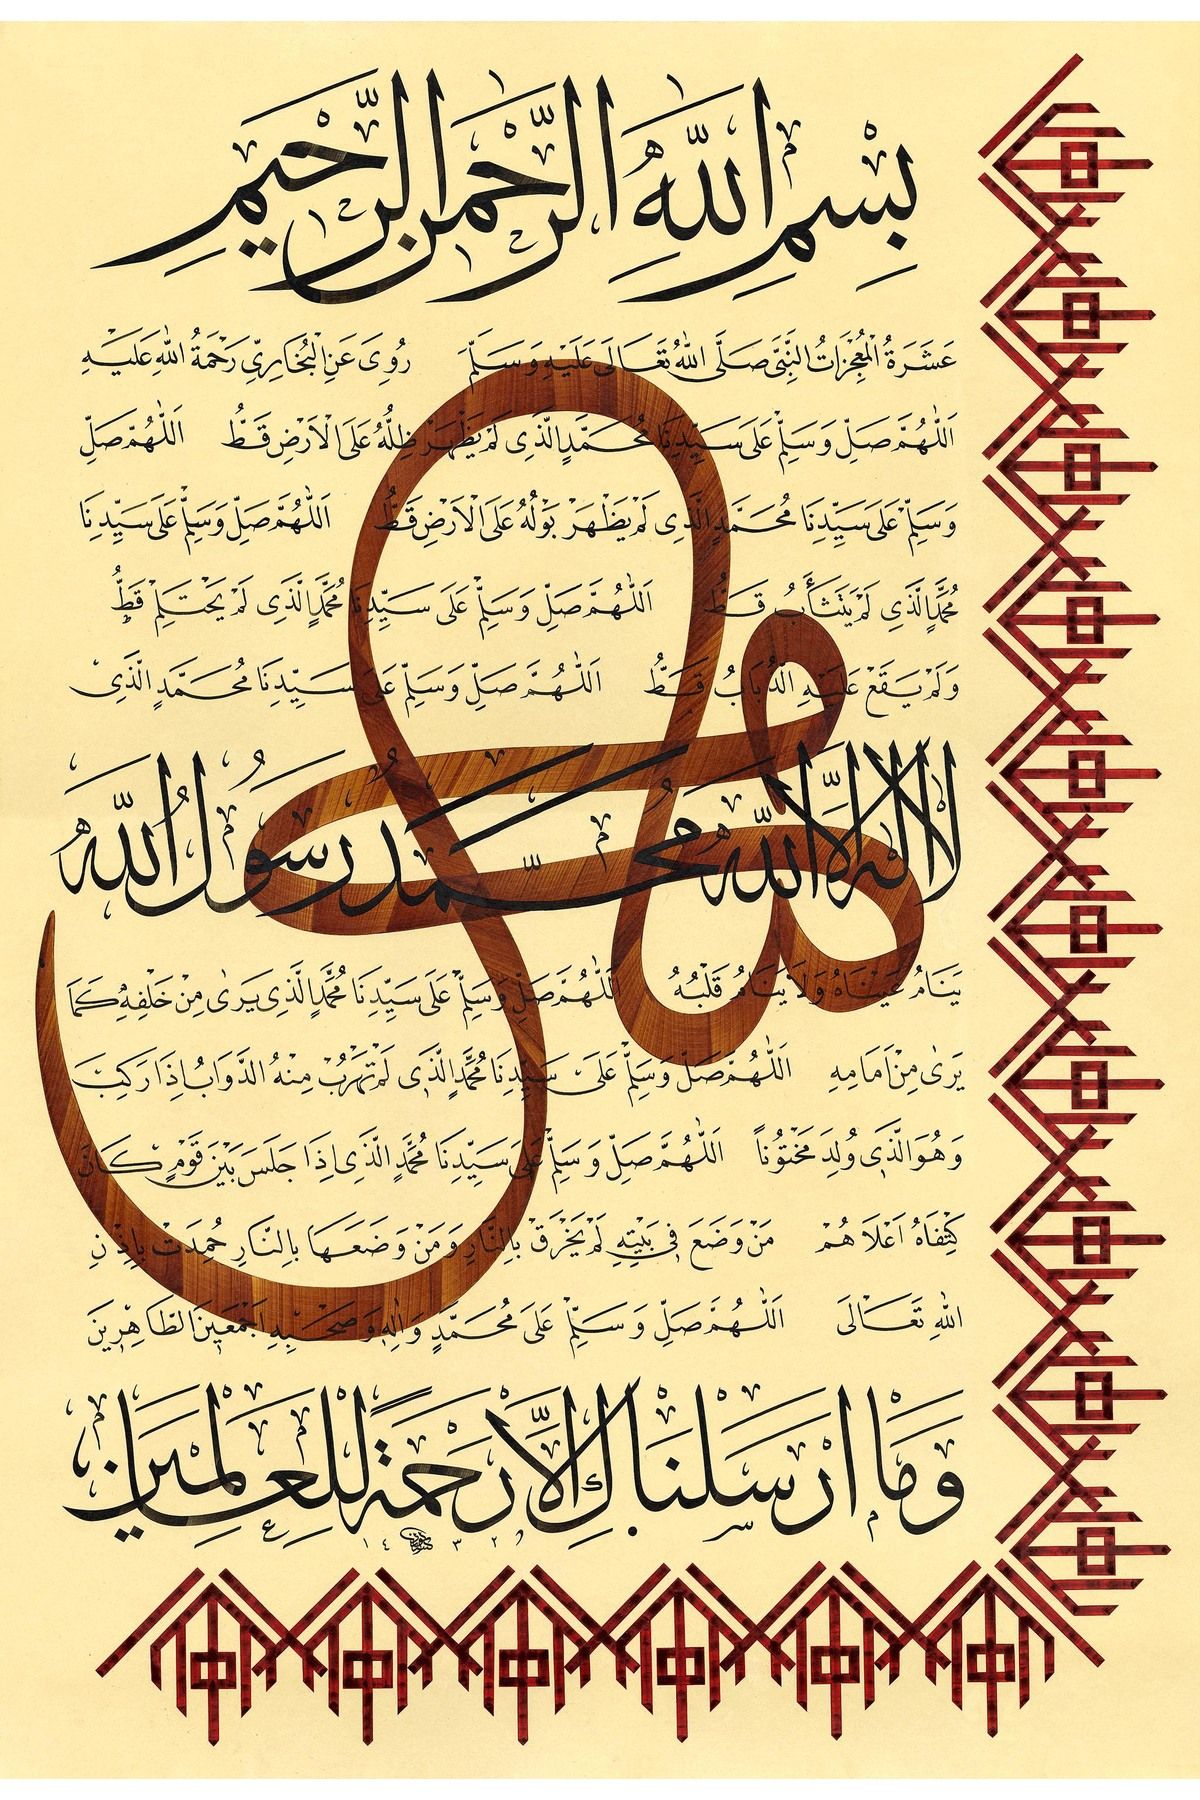 بِسْمِ اللّٰهِ الرَّحْمٰنِ الرَّحِيمِ
عَشَرَةُ الْمُعْجِزَاتُ النَّبِيّ صَلَّى اللّٰهُ تَعَالَى عَلَيْهِ وَسَلَّمَ رُوِىَ عَنِ الْبُخَارِىِّ رَحْمَةُ اللّٰهِ عَلَيْهِ
اَللّٰهُمَّ صَلِّ وَسَلِّمْ عَلَى سَيِّدِنَا مُحَمَّدٍ الَّذِى لَمْ يَظْهَرْ ظِلُّهُ عَلَى الْاَرْضِ قَطُّ اَللّٰهُمَّ صَلِّ
وَسَلِّمْ عَلَى سَيِّدِنَا مُحَمَّدٍ الَّذِى لَمْ يَظْهَرْ بَوْلُهُ عَلَى الْاَرْضِ قَطُّ اَللّٰهُمَّ صَلِّ وَسَلِّمْ عَلَى سَيِّدِنَا
مُحَمَّدٍ الَّذِى لَمْ يَتَثَأَبُ قَطُّ اَللّٰهُمَّ صَلِّ وَسَلِّمْ عَلَى سَيِّدِنَا مُحَمَّدٍ الَّذِى لَمْ يَحْتَلِمْ قَطُّ
وَلَمْ يَقَعْ عَلَيْهِ الذُّبَابُ قَطُّ اَللّٰهُمَّ صَلِّ وَسَلِّمْ عَلَى سَيِّدِنَا مُحَمَّدٍ الَّذِى
لَا اِلٰهَ اِلَّا اللّٰهُ مُحَمَّدٌ رَسُولُ اللّٰهِ
يَنَامُ عَيْنَاهُ وَلَا يَنَامُ قَلْبُهُ اَللّٰهُمَّ صَلِّ وَسَلِّمْ عَلَى سَيِّدِنَا مُحَمَّدٍ الَّذِى يَرٰى مِنْ خَلْفِهِ كَمَا
يَرٰى مِنْ اَمَامِهِ اَللّٰهُمَّ صَلِّ وَسَلِّمْ عَلَى سَيِّدِنَا مُحَمَّدٍ الَّذِى لَمْ تَهْرُبْ مِنْهُ الدَّوَابُ اِذَا رَكِبَ
وَهُوَ الَّذِى وُلِدَ مَخْتُونًا اَللّٰهُمَّ صَلِّ وَسَلِّمْ عَلَى سَيِّدِنَا مُحَمَّدٍ الَّذِى اِذَا جَلَسَ بَيْنَ قَوْمٍ كَانَ
كَتِفَاهُ اَعْلَاهُمْ مَنْ وَضَعَ فِى بَيْتِهِ لَمْ يَحْرَقْ بِالنَّارِ وَمَنْ وَضَعَهَا بِالنَّارِ خُمِدَتْ بِاِذْنِ
اللّٰهِ تَعَالَى اَللّٰهُمَّ صَلِّ وَسَلِّمْ عَلَى مُحَمَّدٍ وَاٰلِهِ وَصَحْبِهِ اَجْمَعِينَ الطَّاهِرِينَ
وَمَا اَرْسَلْنَاكَ اِلَّا رَحْمَةً لِلْعَالَمِينَ